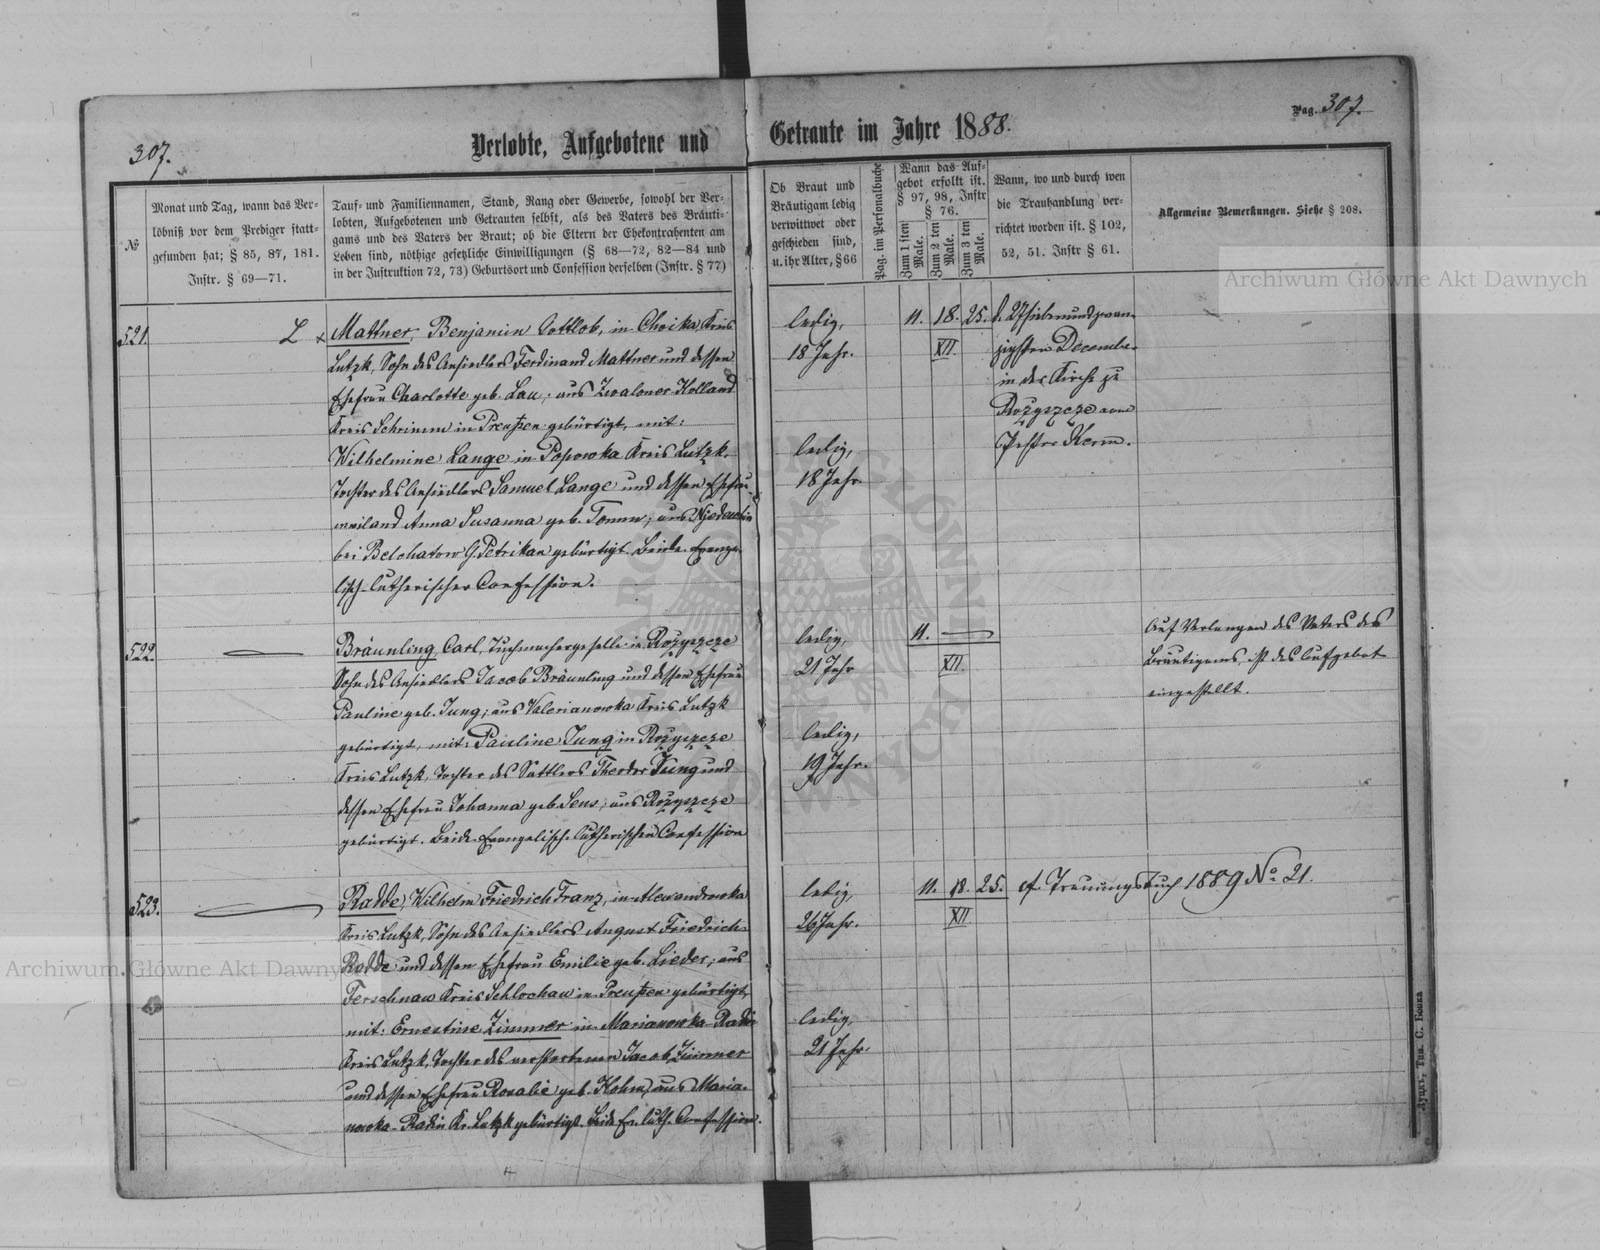 307.
Verlobte, Aufgebotene und Getraute im Jahre 1888.
Pag. 307.
№
Monat und Tag, wann das Ver-
löbniß vor dem Prediger statt-
gefunden hat; § 85, 87, 181.
Instr. § 69—71.
Tauf- und Familiennamen, Stand, Rang oder Gewerbe, sowohl der Ver-
lobten, Aufgebotenen und Getrauten selbst, als des Vaters des Bräuti-
gams und des Vaters der Braut; ob die Eltern der Ehekontrahenten am
Leben sind, nöthige gesetzliche Einwilligungen (§ 68—72, 82—84 und
in der Instruktion 72, 73) Geburtsort und Confession derselben (Instr. § 77)
Ob Braut und
Bräutigam ledig
verwittwet oder
geschieden sind,
u. ihr Alter, § 66
Pag. im Personalbuche
Wann das Auf-
gebot erfolgt ist.
§ 97, 98, Instr
§ 76.
Zum 1 sten
Male.
Zum 2 ten
Male.
Zum 3 ten
Male.
Wann, wo und durch wen
die Trauhandlung ver-
richtet worden ist. § 102,
52, 51. Instr § 61.
Allgemeine Bemerkungen. Siehe § 208.
Archiwum Główne Akt Dawnych
521.
L x
Mattner, Benjamin Gottlob, in Choika Kreis
Lutzk, Sohn des Ansiedlers Ferdinand Mattner und dessen
Ehefrau Charlotte geb. Lau, aus Zwaloner Holland
Kreis Schrimm in Preußen gebürtigt, mit:
Wilhelmine Lange in Popowka Kreis Lutzk.
Tochter des Ansiedlers Samuel Lange und dessen Ehefrau
weiland Anna Susanna geb. Tomm, aus
bei Belchatow G. Petrikau gebürtigt. Beide Evange-
lisch-lutherischer Confession.
ledig,
18 Jahr.
ledig,
18 Jahr.
11. 18. 25.
XII.
d. 27 siebenundzwan-
zigsten December
in der Kirche zu
Rożyszcze vom
Pastor Kerm.
522.
Bräunling, Carl, Tuchmachergeselle in Rożyszcze
Sohn des Ansiedlers Jacob Bräunling und dessen Ehefrau
Pauline geb. Jung, aus Valerianowka Kreis Lutzk
gebürtigt, mit: Pauline Jung in Rożyszcze
Kreis Lutzk, Tochter des Sattlers Theodor Jung und
dessen Ehefrau Johanna geb. Sens, aus Rożyszcze
gebürtigt. Beide Evangelisch-Lutherischer Confession
ledig,
21 Jahr
ledig,
19 Jahr.
11.
XII.
Auf Verlangen des Vaters des
Bräutigams, ist das Aufgebot
eingestellt.
523.
Radde, Wilhelm Friedrich Franz, in Alexandrowka
Kreis Lutzk, Sohn des Ansiedlers August Friedrich
Radde und dessen Ehefrau Emilie geb. Lieder, aus
Ferschnau Kreis Schlochau in Preußen gebürtigt,
mit: Ernestine Zimmer in Marianowka-Radin
Kreis Lutzk, Tochter des verstorbenen Jacob Zimmer
und dessen Ehefrau Rosalie geb. Kohm, aus Maria-
nowka-Radin Kr. Lutzk gebürtigt. Beide Ev. luth. Confession.
ledig,
26 Jahr.
ledig,
21 Jahr.
11. 18. 25.
XII
cf. Trauungsbuch 1889 No 21.
Archiwum Główne Akt Dawnych
Луцкъ, Тип. С. Бонка